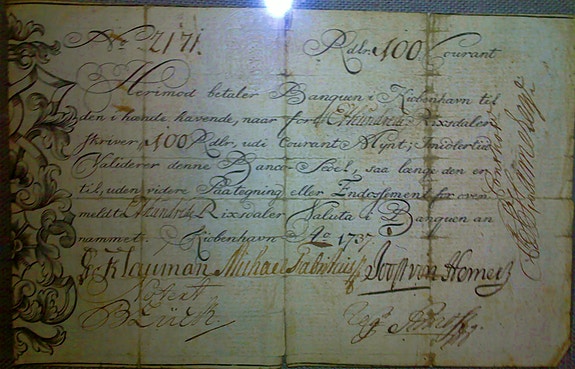 No 2171. Rdlr. 100. Courant
Herimod betaler Banquen i Kiøbenhavn til
den i hænde havende, naar Hundrede Rixsdaler
skriver 100 Rdlr. udi Courant Mynt; Imidlertid
Validerer denne Banco-Sedel, saa længe den er
til, uden videre Paategning eller Endossement, for oven
meldte Hundrede Rixsdaler Valuta i Banquen an
nammet. Kiøbenhavn Ao 1737.
Klauman Michael Fabritius Joost von Hemert
Notert
B Lück.